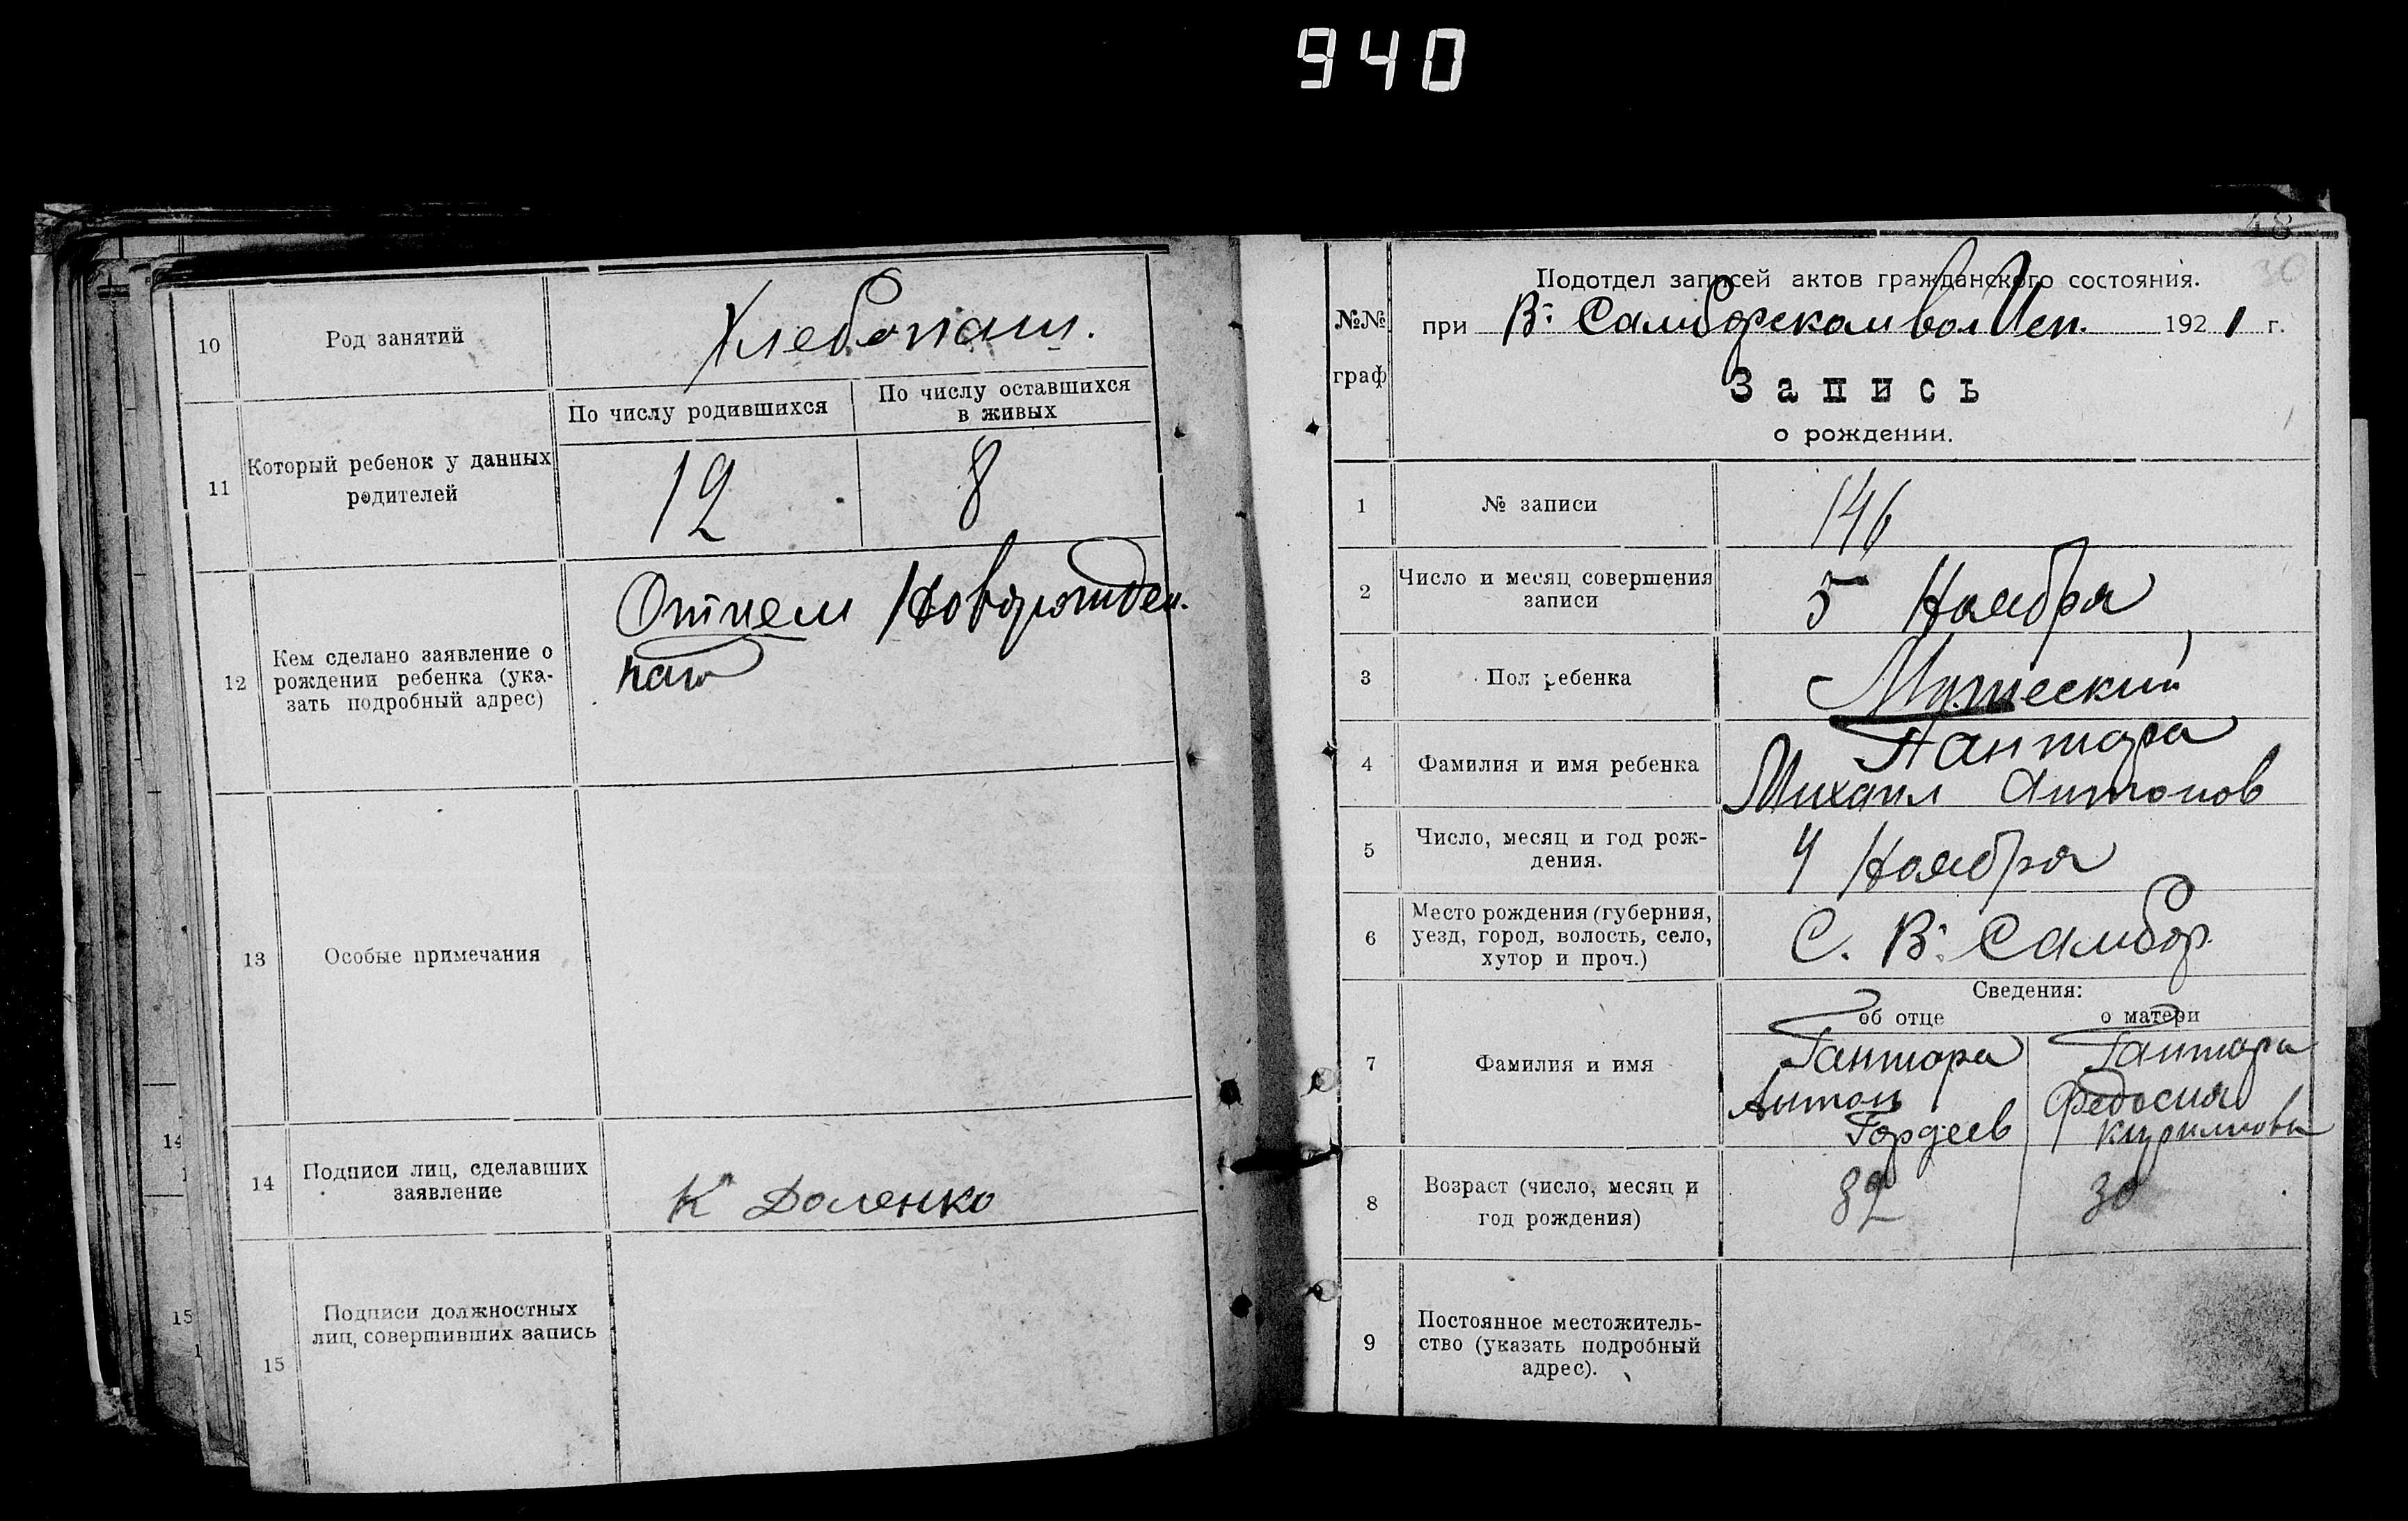 940
10
Род занятий
Хлебопаш.
11
Который ребенок у данных
родителей
По числу родившихся
По числу оставшихся
в живых
12
8
12
Кем сделано заявление о
рождении ребенка (ука-
зать подробный адрес)
Отцем Новорожден.
13
Особые примечания
14
Подписи лиц, сделавших
заявление
К Доленко
15
Подписи должностных
лиц, совершивших запись
14
15
48
30
№№
граф
Подотдел записей актов гражданского состояния.
при В: Самборском вол Исп. 1921 г.
Запись
о рождении.
1
№ записи
146
2
Число и месяц совершения
записи
5 Ноября
3
Пол ребенка
Мужеский
4
Фамилия и имя ребенка
Гантара
Михаил Антонов
5
Число, месяц и год рож-
дения.
4 Ноября
6
Место рождения (губерния,
уезд, город, волость, село,
хутор и проч.)
С. В: Самбор
Сведения:
об отце
о матери
7
Фамилия и имя
Гантара
Антон
Гордеев
Гантара
Федосия
Кирилловна
8
Возраст (число, месяц и
год рождения)
32
30
9
Постоянное местожитель-
ство (указать подробный
адрес).